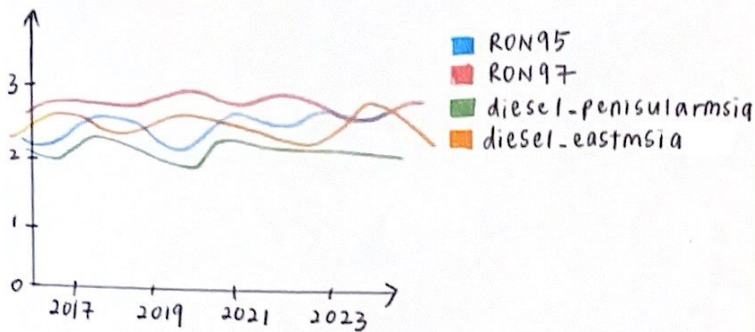 RON95
RON97
diesel_penisularmsia
diesel_eastmsia
3
2
1
0
2017 2019 2021 2023